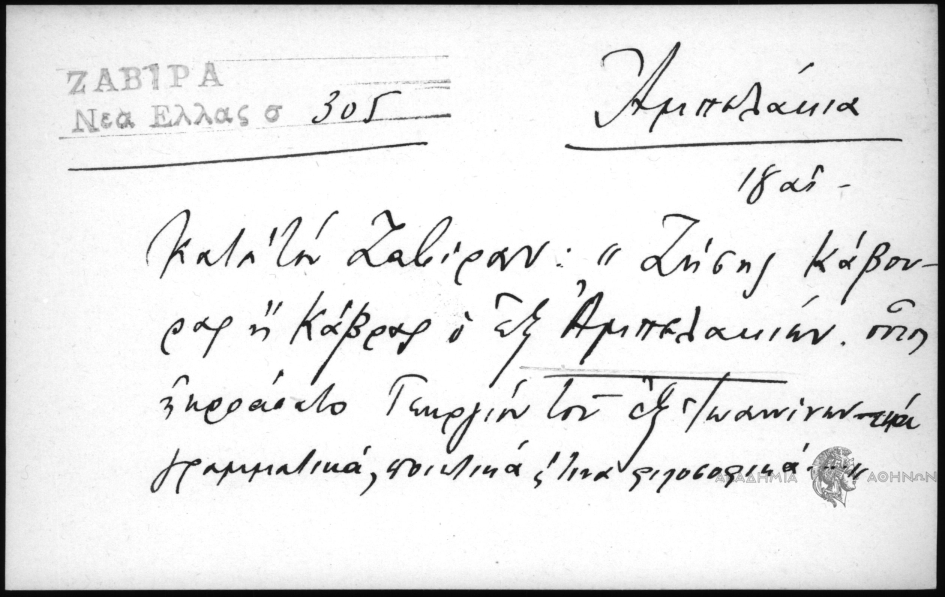 ΖΑΒΙΡΑ
Νέα Ελλας σ 305
Ἀμπελάκια
18 αἰ -
Κατὰ τὸν Ζαβίραν: "Ζήσης Κάβου-
ρας ἢ Κάβρας ὁ ἐξ Ἀμπελακιών. οὗτος
ἠκροάσατο Γεωργίου τοῦ ἐξ Ἰωαννίνων τὰ
γραμματικά, ποιητικά ἐ τινα φιλοσοφικά
ΑΚΑΔΗΜΙΑ ΑΘΗΝΩΝ